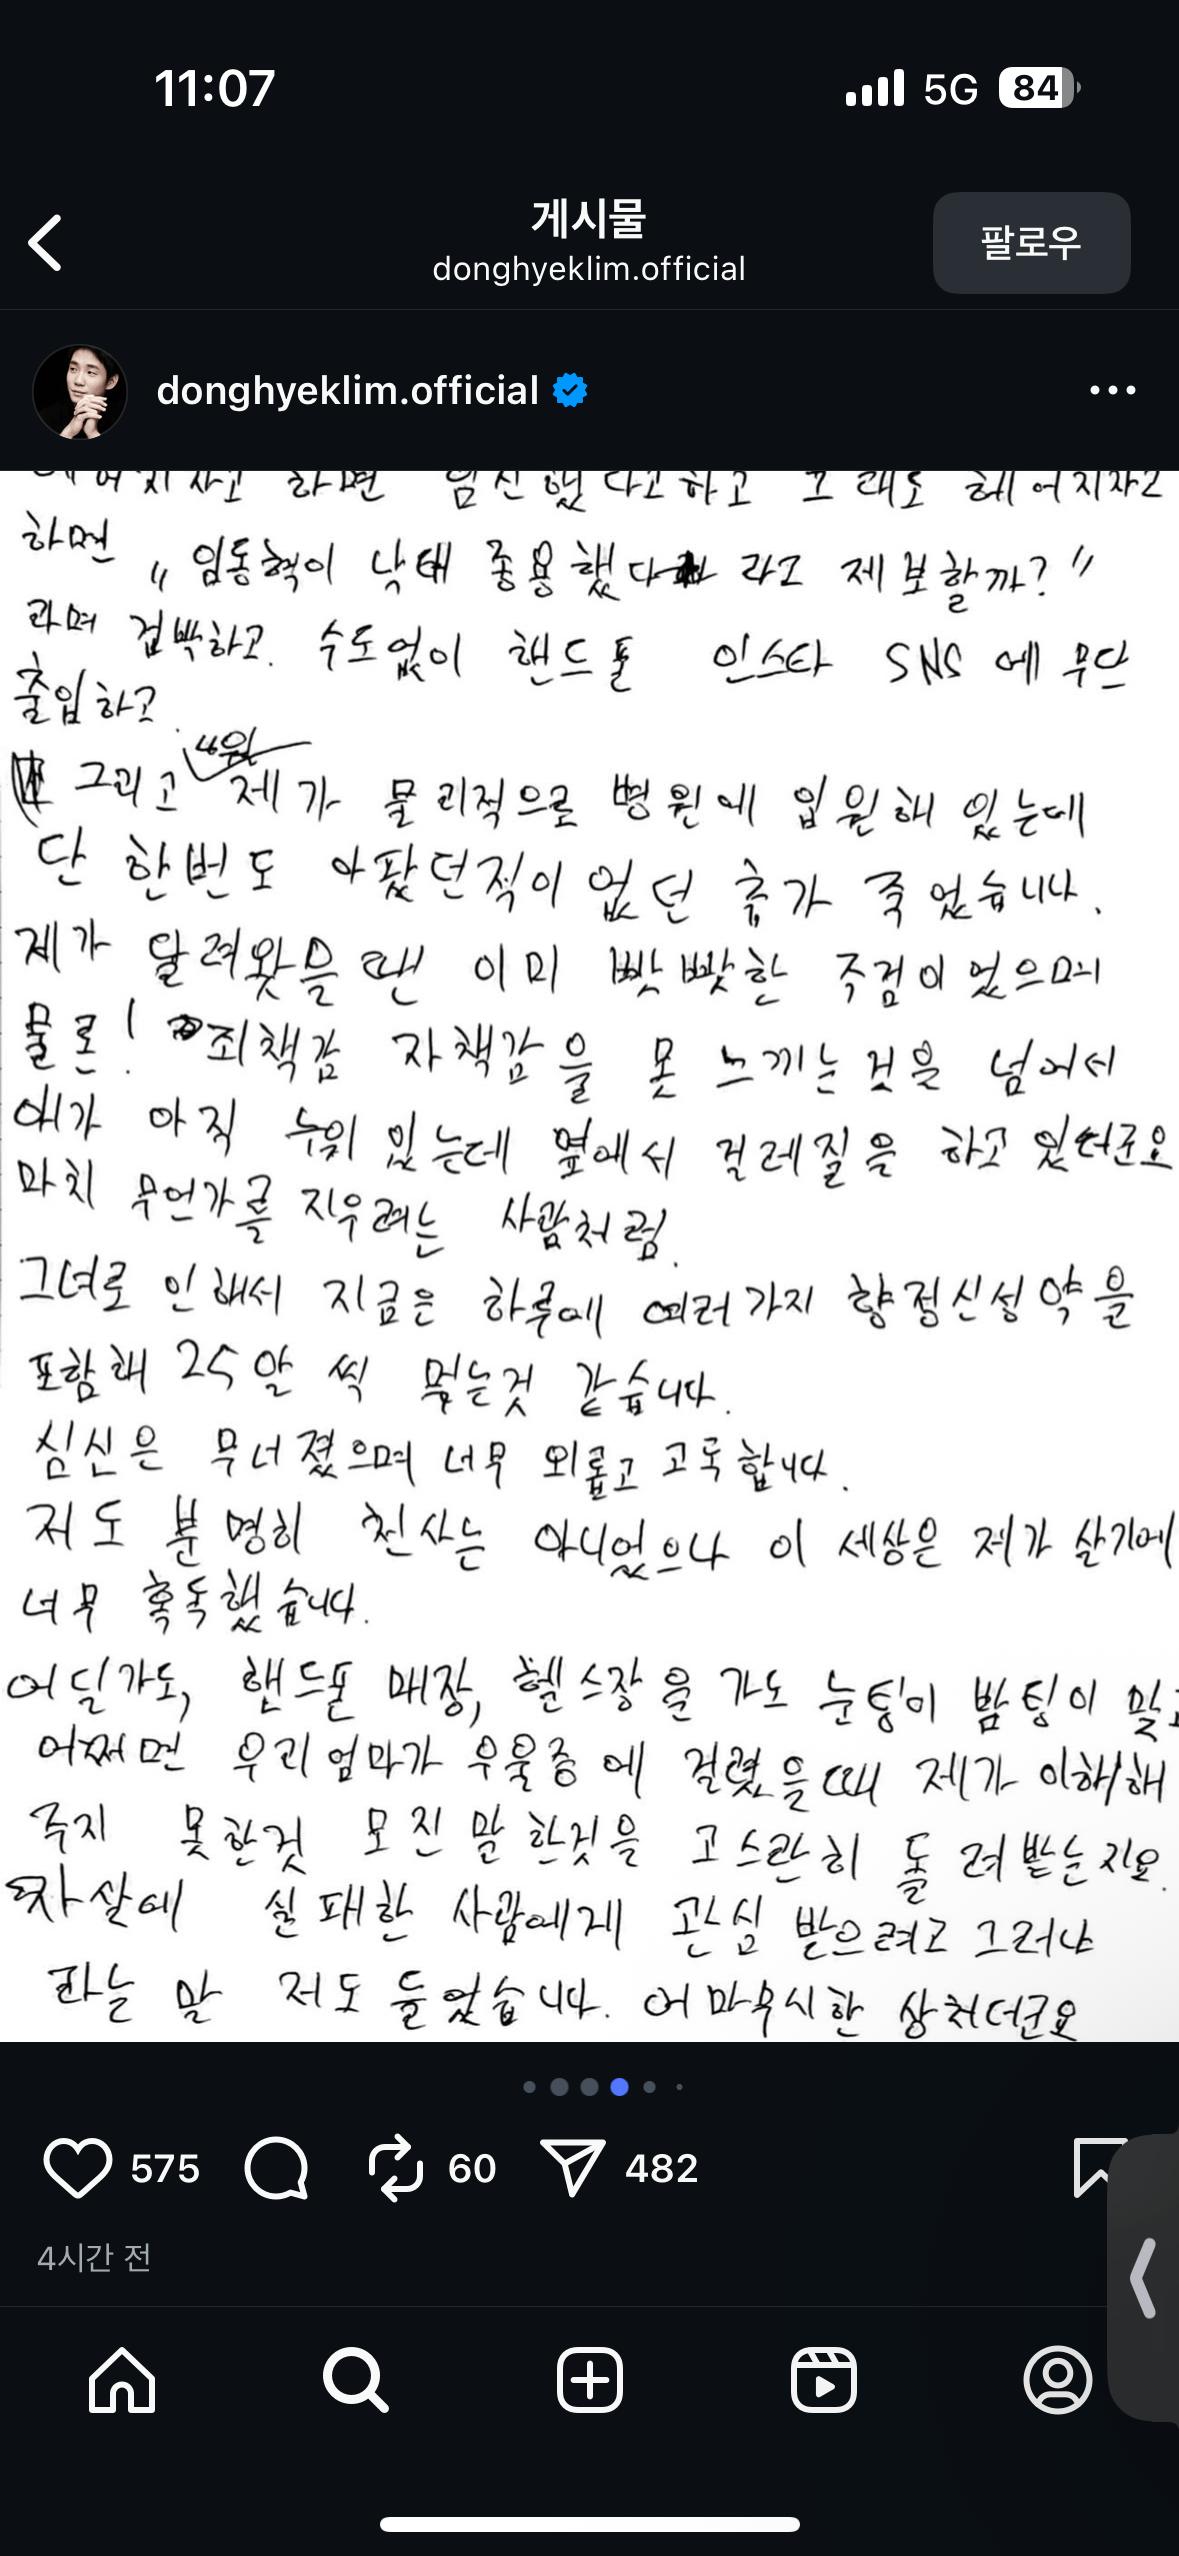 11:07
5G 84
게시물
donghyeklim.official
팔로우
donghyeklim.official
헤어지자고 하면 임신했다고하고 그래도 헤어지자고
하면 "임동혁이 낙태 종용했다 라고 제보할까?"
라며 겁박하고. 수도없이 핸드폰 인스타 SNS에 무단
출입하고.
4월
그리고 제가 물리적으로 병원에 입원해 있는데
단 한번도 아팠던적이 없던 휴가 죽었습니다.
제가 달려왓을땐 이미 빳빳한 주검이었으며
물론! 죄책감 자책감을 못 느끼는 것을 넘어서
애가 아직 누워 있는데 옆에서 걸레질을 하고 있더군요
마치 무언가를 지우려는 사람처럼.
그녀로 인해서 지금은 하루에 여러가지 향정신성약을
포함해 25알 씩 먹는것 같습니다.
심신은 무너졌으며 너무 외롭고 고독합니다.
저도 분명히 천사는 아니었으나 이 세상은 제가 살기에
너무 혹독했습니다.
어딜가도, 핸드폰 매장, 헬스장을 가도 눈팅이 밤팅이 말고
어쩌면 우리엄마가 우울증에 걸렸을때 제가 이해해
주지 못한것 모진 말 한것을 고스란히 돌려받는지요.
자살에 실패한 사람에게 관심 받으려고 그러냐
라는 말 저도 들었습니다. 어마무시한 상처더군요
575
60
482
4시간 전